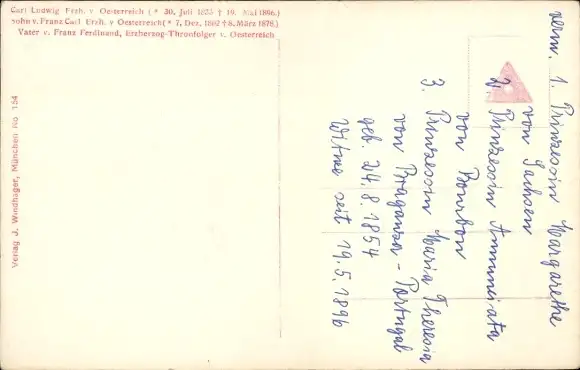 Carl Ludwig Erzh. v Oesterreich (* 30. Juli 1833 † 19. Mai 1896.)
sohn v. Franz Carl Erzh. v Oesterreich (* 7. Dez. 1802 † 8. März 1878.)
Vater v. Franz Ferdinand, Erzherzog-Thronfolger v. Oesterreich
Verlag J. Windhager, München No 154
verm. 1. Prinzessin Margarethe
von Sachsen
2. Prinzessin Annunciata
von Bourbon
3. Prinzessin Maria Theresia
von Braganza - Portugal
geb. 24.8.1854
Witwe seit 19.5.1896